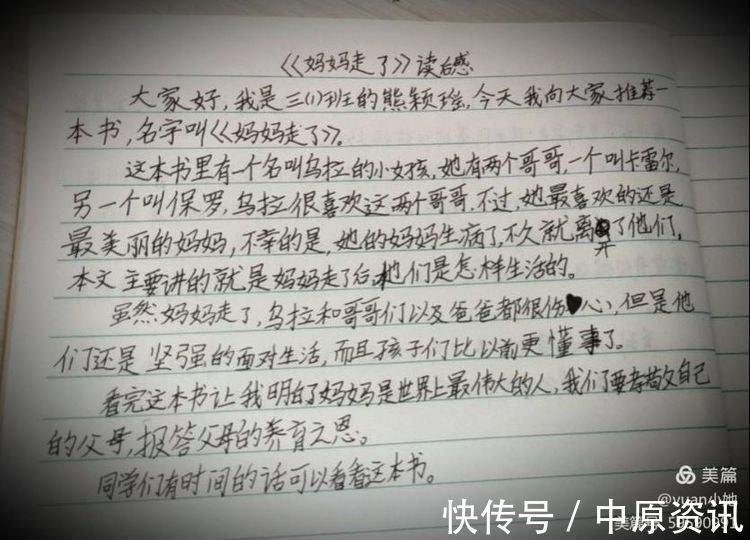 《妈妈走了》读后感
大家好，我是三(1)班的熊颖瑶，今天我向大家推荐一
本书，名字叫《妈妈走了》。
这本书里有一个名叫乌拉的小女孩，她有两个哥哥，一个叫卡雷尔，
另一个叫保罗，乌拉很喜欢这两个哥哥，不过，她最喜欢的还是
最美丽的妈妈，不幸的是，她的妈妈生病了，不久就离开了他们，
本文主要讲的就是妈妈走了后，他们是怎样生活的。
虽然妈妈走了，乌拉和哥哥们以及爸爸都很伤心，但是他
们还是坚强的面对生活，而且孩子们比以前更懂事了。
看完这本书让我明白了妈妈是世界上最伟大的人，我们要孝敬自己
的父母，报答父母的养育之恩。
同学们有时间的话可以看看这本书。
美篇
@yuan小她
快传号 / 中原资讯